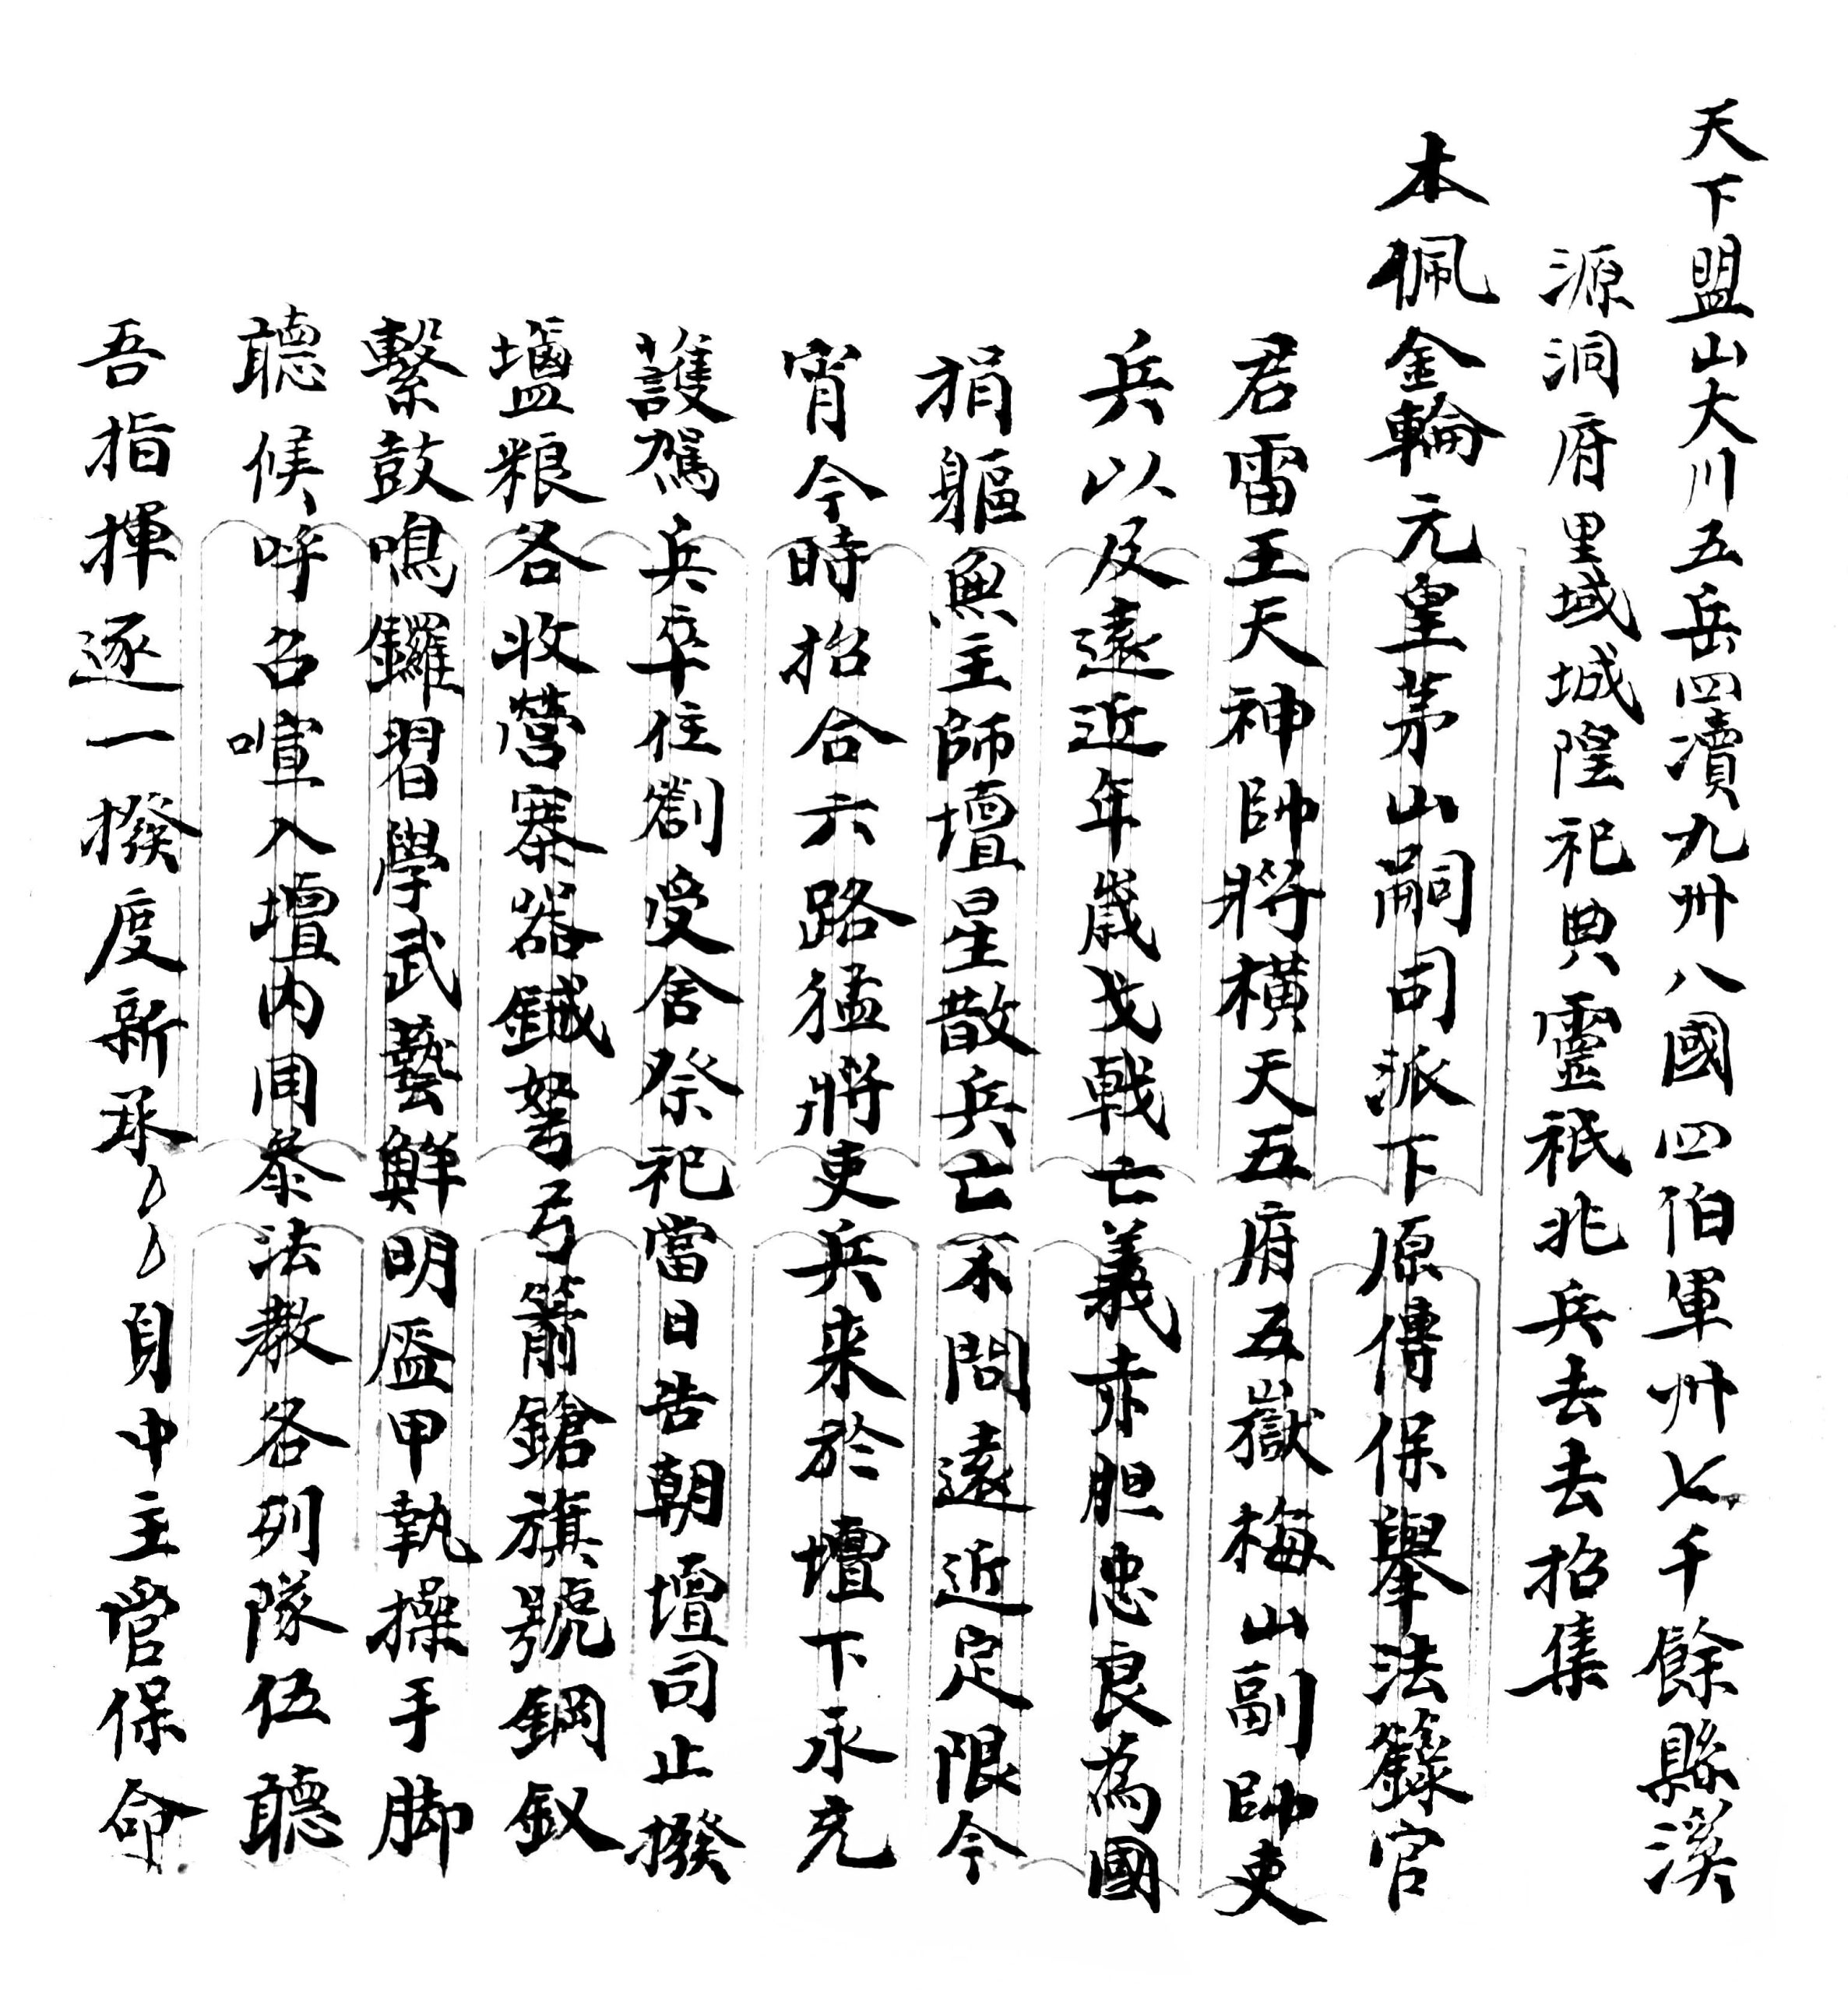 天下盟山大川五岳四瀆九州八國四伯軍州七千餘縣溪
源洞府里域城隍祀典靈祇兆兵去去招集
本佩金輪元皇茅山嗣司派下原傳保舉法籙官
君雷王天神帥將橫天五府五嶽梅山副帥吏
兵以及遠近年歲戈戰亡義赤胆忠良為國
捐軀無主師壇星散兵亡不問遠近定限今
宵今時招合六路猛將吏兵来於壇下永充
護駕兵卒住劄受舍祭祀當日告朝壇司止撥
鹽粮各收營寨器鉞弩弓箭鎗旗號鋼釵
繫鼓鳴鑼習學武藝鮮明盔甲執操手脚
聽候呼名喧入壇內同叅法教各列隊伍聽
吾指揮逐一撥度新承 身中主管保命